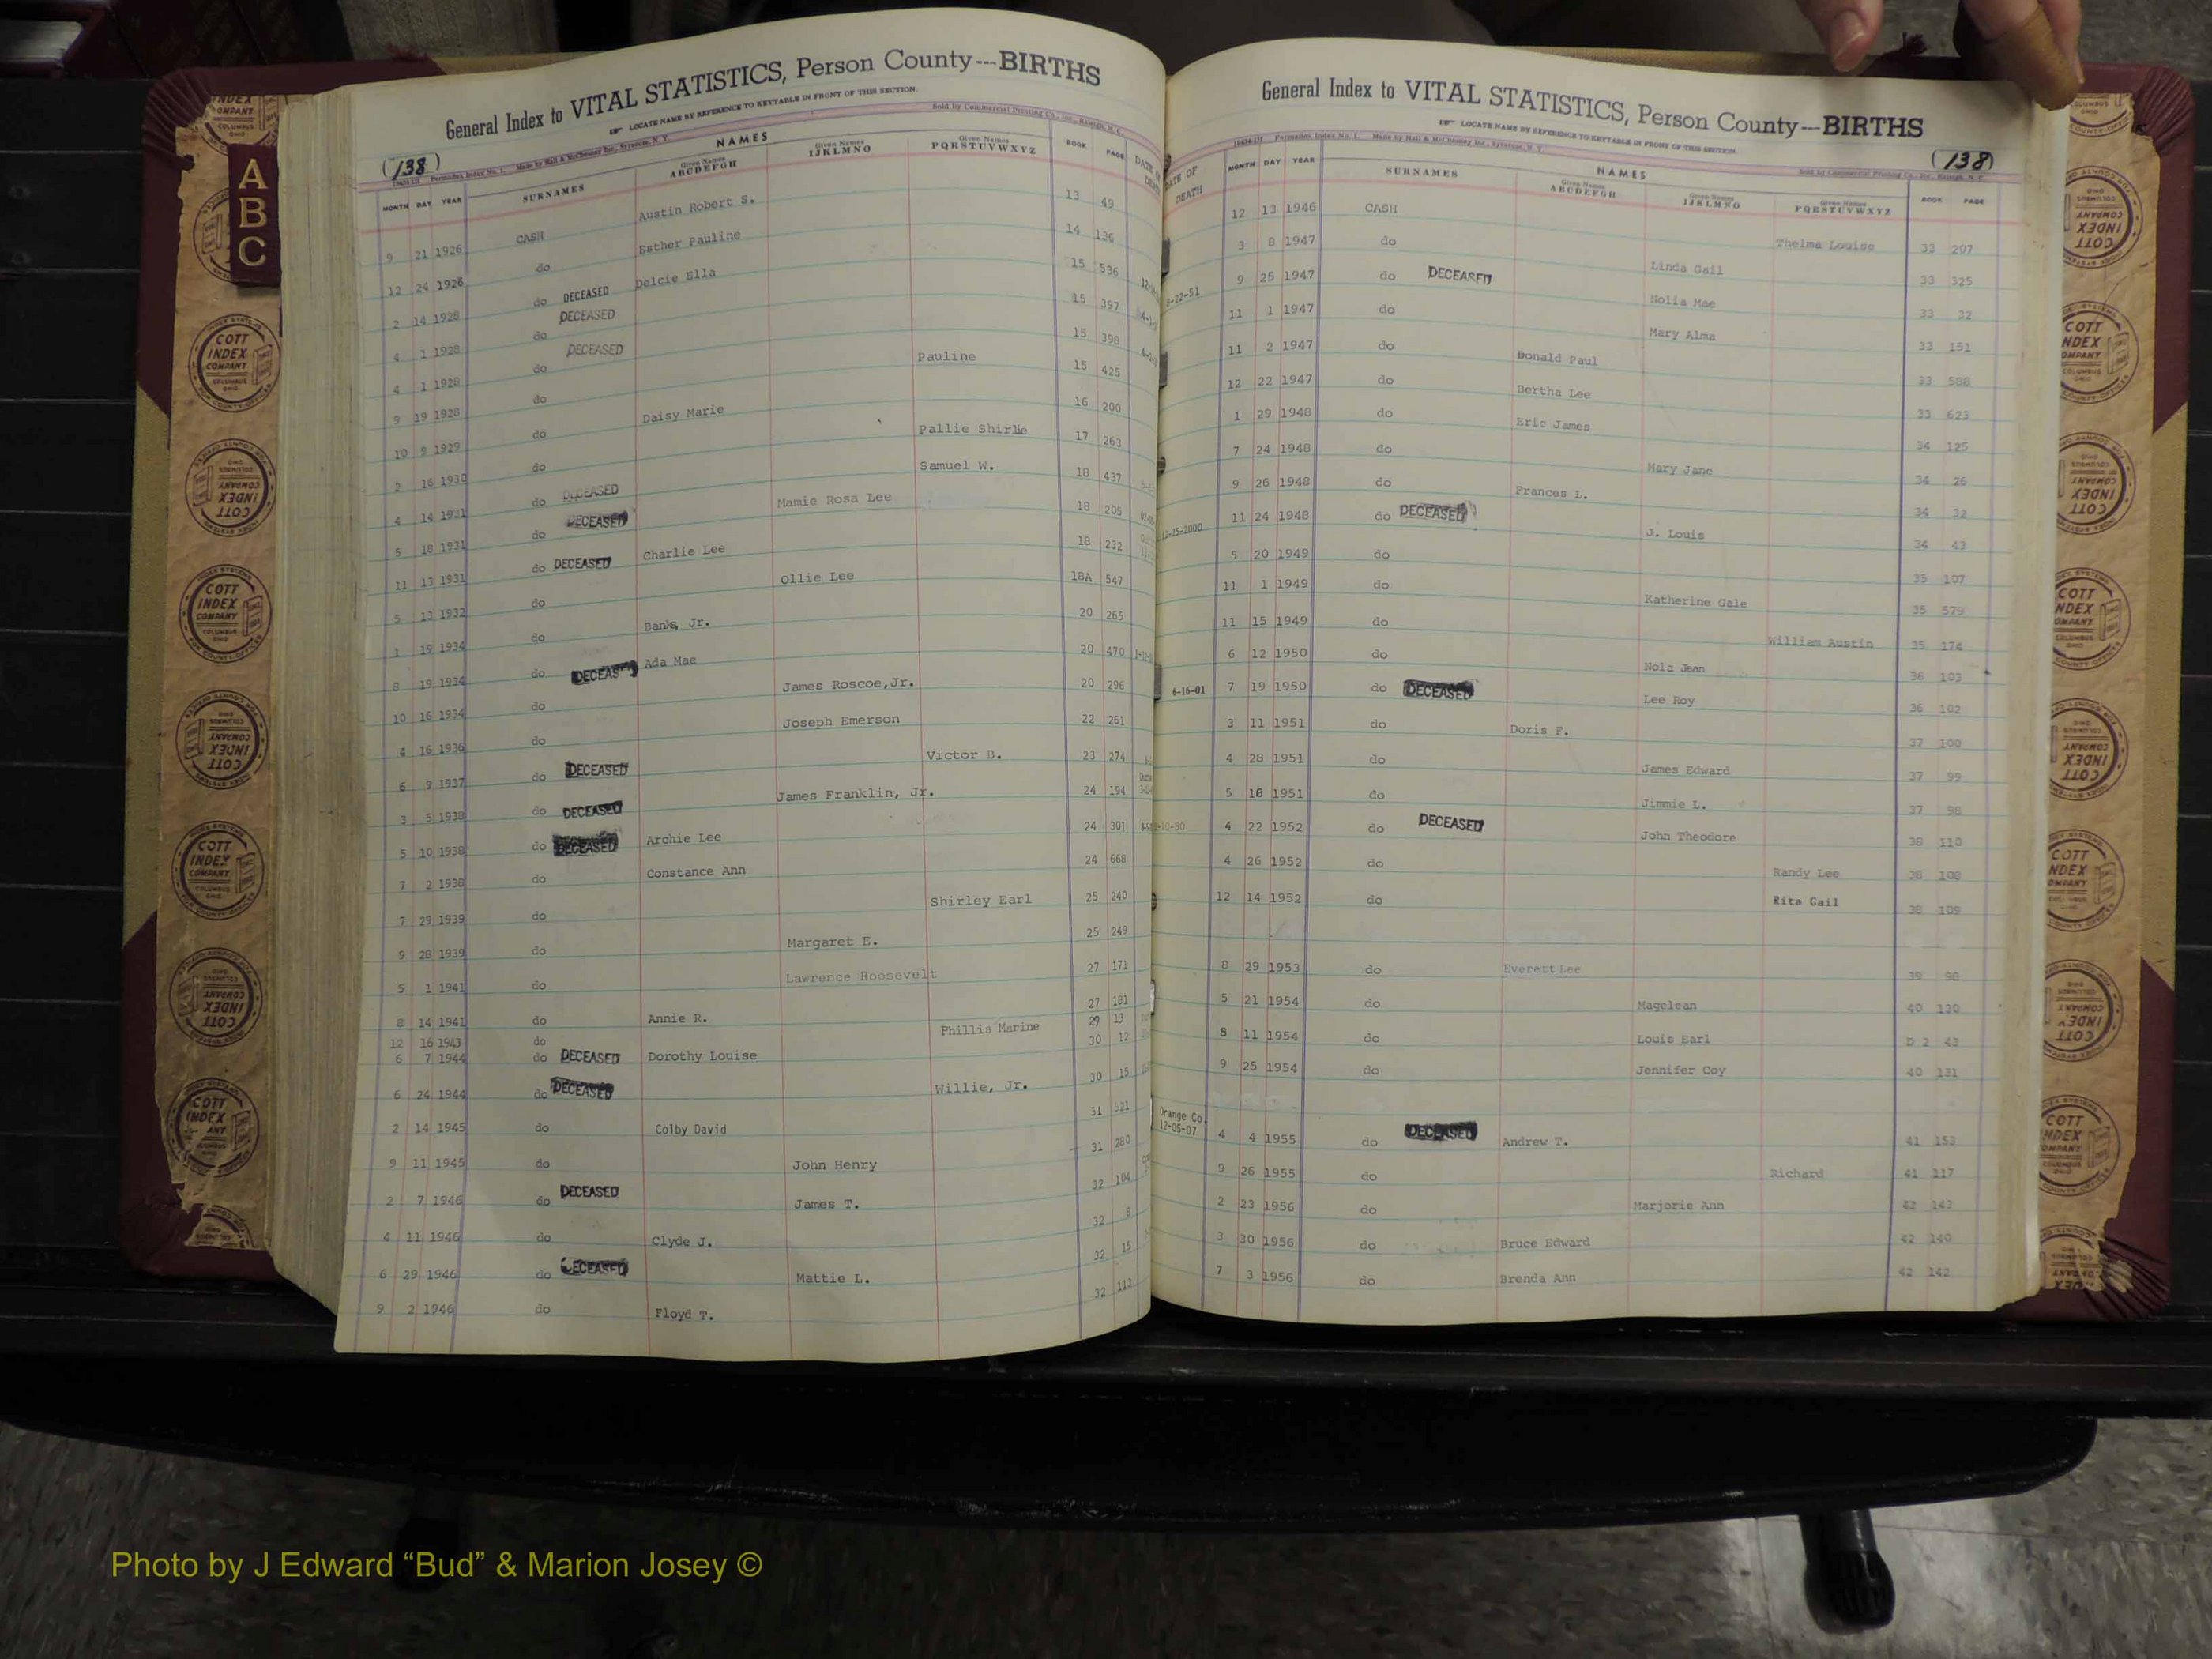 General Index to VITAL STATISTICS, Person County---BIRTHS
LOCATE NAME BY REFERENCE TO KEYTABLE IN FRONT OF THIS SECTION.
Sold by Commercial Printing Co., Inc., Raleigh, N. C.
(138)
Permadex Index No. 1. Made by Hall & McChesney Inc., Syracuse, N. Y.
NAMES
MONTH DAY YEAR SURNAMES Given Names ABCDEFGH Given Names IJKLMNO Given Names PQRSTUVWXYZ BOOK PAGE
9 21 1926 CASH Austin Robert S. 13 49
12 24 1926 do Esther Pauline 14 136
2 14 1928 do DECEASED Delcie Ella 15 536
4 1 1928 do DECEASED 15 397
4 1 1928 do DECEASED 15 398
9 19 1928 do Pauline 15 425
10 9 1929 do Daisy Marie 16 200
2 16 1930 do Pallie Shirlie 17 263
4 14 1931 do DECEASED Samuel W. 18 437
5 18 1931 do DECEASED Mamie Rosa Lee 18 205
11 13 1931 do DECEASED Charlie Lee 18 232
5 13 1932 do Ollie Lee 18A 547
1 19 1934 do Banks, Jr. 20 265
8 19 1934 do DECEASED Ada Mae 20 470
10 16 1934 do James Roscoe, Jr. 20 296
4 16 1936 do Joseph Emerson 22 261
6 9 1937 do DECEASED Victor B. 23 274
3 5 1938 do DECEASED James Franklin, Jr. 24 194
5 10 1938 do DECEASED Archie Lee 24 301
7 2 1938 do Constance Ann 24 668
7 29 1939 do Shirley Earl 25 240
9 28 1939 do Margaret E. 25 249
5 1 1941 do Lawrence Roosevelt 27 171
8 14 1941 do Annie R. 27 181
12 16 1943 do Phillis Marine 29 13
6 7 1944 do DECEASED Dorothy Louise 30 12
6 24 1944 do DECEASED Willie, Jr. 30 15
2 14 1945 do Colby David 31 521
9 11 1945 do John Henry 31 280
2 7 1946 do DECEASED James T. 32 104
4 11 1946 do Clyde J. 32 8
6 29 1946 do DECEASED Mattie L. 32 15
9 2 1946 do Floyd T. 32 113
General Index to VITAL STATISTICS, Person County---BIRTHS
LOCATE NAME BY REFERENCE TO KEYTABLE IN FRONT OF THIS SECTION.
(138)
Permadex Index No. 1. Made by Hall & McChesney Inc., Syracuse, N. Y.
Sold by Commercial Printing Co., Inc., Raleigh, N. C.
NAMES
DATE OF DEATH MONTH DAY YEAR SURNAMES Given Names ABCDEFGH Given Names IJKLMNO Given Names PQRSTUVWXYZ BOOK PAGE
12 13 1946 CASH Thelma Louise 33 207
3 8 1947 do Linda Gail 33 325
9 25 1947 do DECEASED Nolia Mae 33 32
11 1 1947 do Mary Alma 33 151
11 2 1947 do Donald Paul 33 588
12 22 1947 do Bertha Lee 33 623
1 29 1948 do Eric James 34 125
7 24 1948 do Mary Jane 34 26
9 26 1948 do Frances L. 34 32
11 24 1948 do DECEASED J. Louis 34 43
5 20 1949 do 35 107
11 1 1949 do Katherine Gale 35 579
11 15 1949 do William Austin 35 174
6 12 1950 do Nola Jean 36 103
6-16-01 7 19 1950 do DECEASED Lee Roy 36 102
3 11 1951 do Doris F. 37 100
4 28 1951 do James Edward 37 99
5 18 1951 do Jimmie L. 37 98
4 22 1952 do DECEASED John Theodore 38 110
4 26 1952 do Randy Lee 38 108
12 14 1952 do Rita Gail 38 109
8 29 1953 do Everett Lee 39 98
5 21 1954 do Magelean 40 130
8 11 1954 do Louis Earl D 2 43
9 25 1954 do Jennifer Coy 40 131
Orange Co.
12-05-07 4 4 1955 do DECEASED Andrew T. 41 153
9 26 1955 do Richard 41 117
2 23 1956 do Marjorie Ann 42 143
3 30 1956 do Bruce Edward 42 140
7 3 1956 do Brenda Ann 42 142
A
B
C
COTT
INDEX
COMPANY
COLUMBUS
OHIO
Photo by J Edward “Bud” & Marion Josey ©